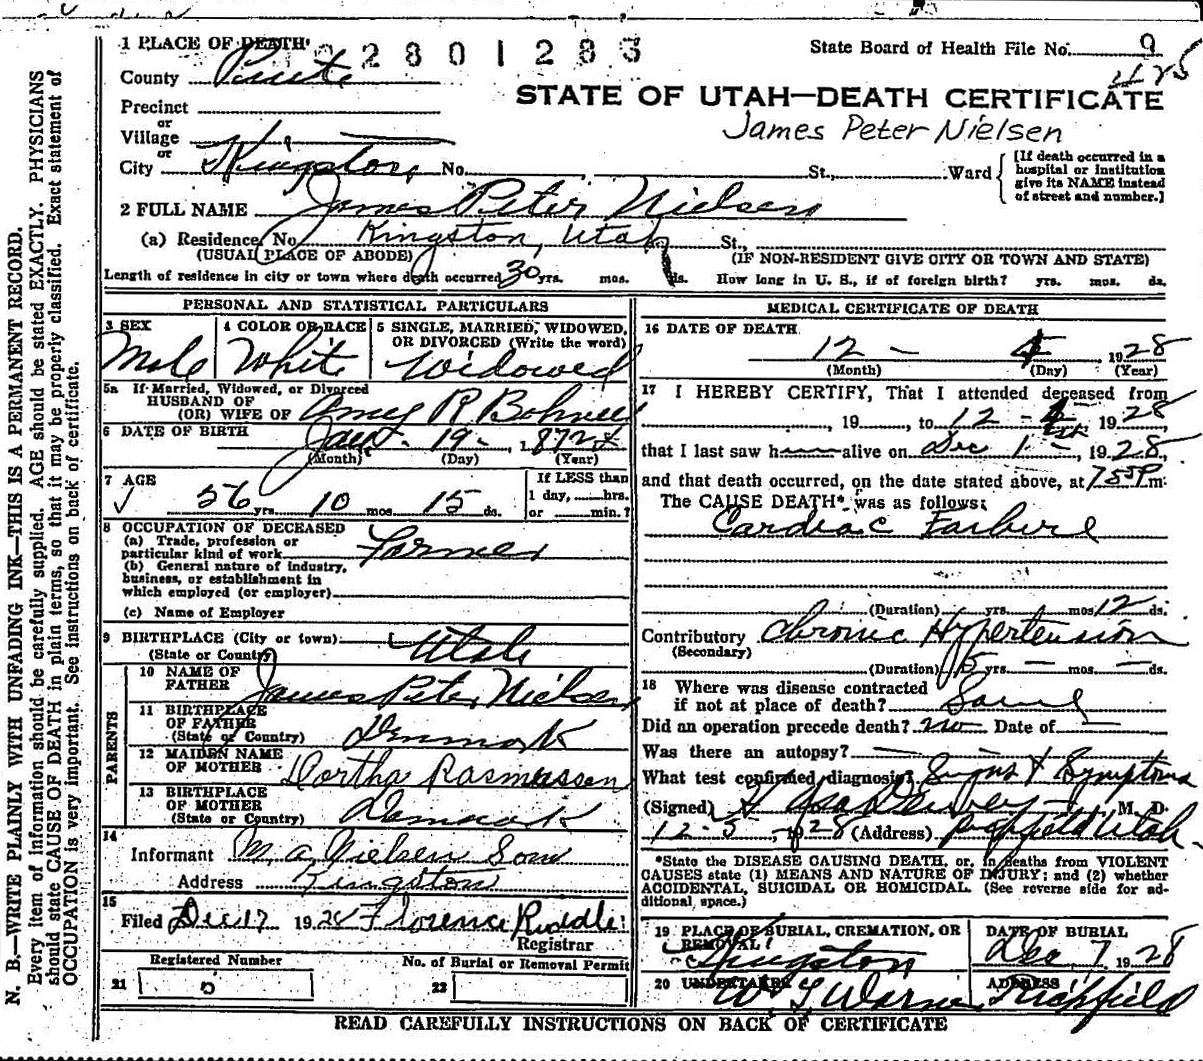 1 PLACE OF DEATH 2801283
State Board of Health File No. 9
425
County Piute
STATE OF UTAH—DEATH CERTIFICATE
Precinct
or
Village
James Peter Nielsen
or
City Kingston, No. St., Ward
[If death occurred in a hospital or institution give its NAME instead of street and number.]
2 FULL NAME James Peter Nielsen
(a) Residence, No. Kingston, Utah St.,
(USUAL PLACE OF ABODE) (IF NON-RESIDENT GIVE CITY OR TOWN AND STATE)
Length of residence in city or town where death occurred 30 yrs. mos. ds. How long in U. S., if of foreign birth? yrs. mos. ds.
PERSONAL AND STATISTICAL PARTICULARS
3 SEX 4 COLOR OR RACE 5 SINGLE, MARRIED, WIDOWED, OR DIVORCED (Write the word)
Male White Widowed
5a If Married, Widowed, or Divorced
HUSBAND OF
(OR) WIFE OF R Bohnee
6 DATE OF BIRTH Jan 19 - 1872
(Month) (Day) (Year)
7 AGE
56 yrs. 10 mos. 15 ds.
If LESS than
1 day, hrs.
or min.?
8 OCCUPATION OF DECEASED
(a) Trade, profession or
particular kind of work Farmer
(b) General nature of industry,
business, or establishment in
which employed (or employer)
(c) Name of Employer
9 BIRTHPLACE (City or town)
(State or Country) Utah
PARENTS
10 NAME OF
FATHER James Peter Nielsen
11 BIRTHPLACE
OF FATHER
(State or Country) Denmark
12 MAIDEN NAME
OF MOTHER Dortha Rasmussen
13 BIRTHPLACE
OF MOTHER
(State or Country) Denmark
14
Informant M. A. Nielsen Son
Address Kingston
15
Filed Dec 17 1928 Florence Ruddle
Registrar
Registered Number No. of Burial or Removal Permit
21 22
MEDICAL CERTIFICATE OF DEATH
16 DATE OF DEATH
12 - 4 1928
(Month) (Day) (Year)
17 I HEREBY CERTIFY, That I attended deceased from
, 19 , to 12 - 1928
that I last saw h alive on Dec 1 - , 1928,
and that death occurred, on the date stated above, at 755P m.
The CAUSE DEATH* was as follows:
Cardiac Failure
(Duration) yrs. mos. 12 ds.
Contributory Chronic Hypertension
(Secondary)
(Duration) 5 yrs. — mos. — ds.
18 Where was disease contracted
if not at place of death? Same
Did an operation precede death? no Date of —
Was there an autopsy? —
What test confirmed diagnosis? Signs & Symptoms
(Signed) M. D.
12 - 5 - 1928 (Address) Richfield Utah
*State the DISEASE CAUSING DEATH, or, in deaths from VIOLENT
CAUSES state (1) MEANS AND NATURE OF INJURY; and (2) whether
ACCIDENTAL, SUICIDAL OR HOMICIDAL. (See reverse side for additional space.)
19 PLACE OF BURIAL, CREMATION, OR REMOVAL DATE OF BURIAL
Kingston Dec 7 1928
20 UNDERTAKER ADDRESS
Richfield
READ CAREFULLY INSTRUCTIONS ON BACK OF CERTIFICATE
N. B.—WRITE PLAINLY WITH UNFADING INK—THIS IS A PERMANENT RECORD.
Every item of information should be carefully supplied. AGE should be stated EXACTLY. PHYSICIANS
should state CAUSE OF DEATH in plain terms, so that it may be properly classified. Exact statement of
OCCUPATION is very important. See instructions on back of certificate.